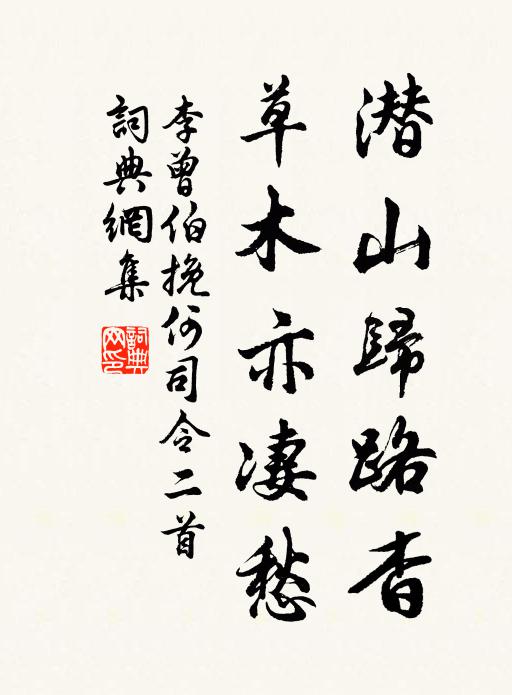 潜山歸路杳
草木亦凄愁
李曾伯挽何司令二首
詞典網集
詞典网印